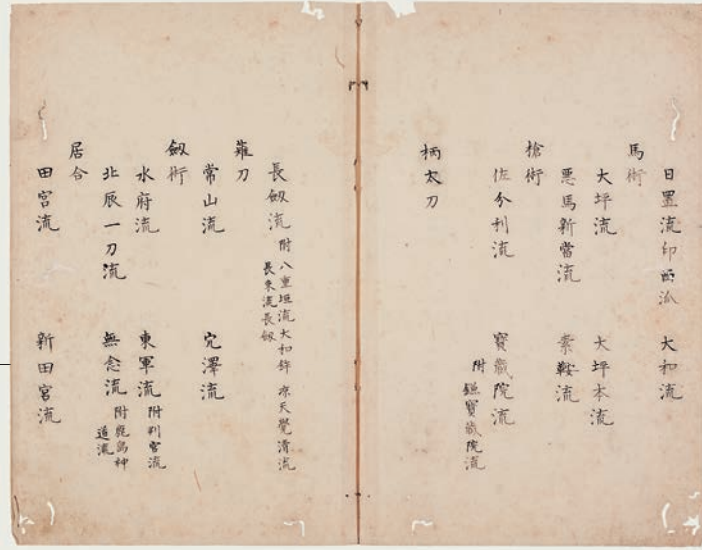 日置流印西派　大和流
馬術
大坪流　大坪本流
悪馬新當流　素鞍流
槍術
佐分利流　寶蔵院流
附鎌寶蔵院流
柄太刀
長劔流　附八重垣流大和鉾
長未流長劔
薙刀
常山流　穴澤流
劔術
水府流　東軍流　附判官流
北辰一刀流　無念流　附鹿島神道流
居合
田宮流　新田宮流